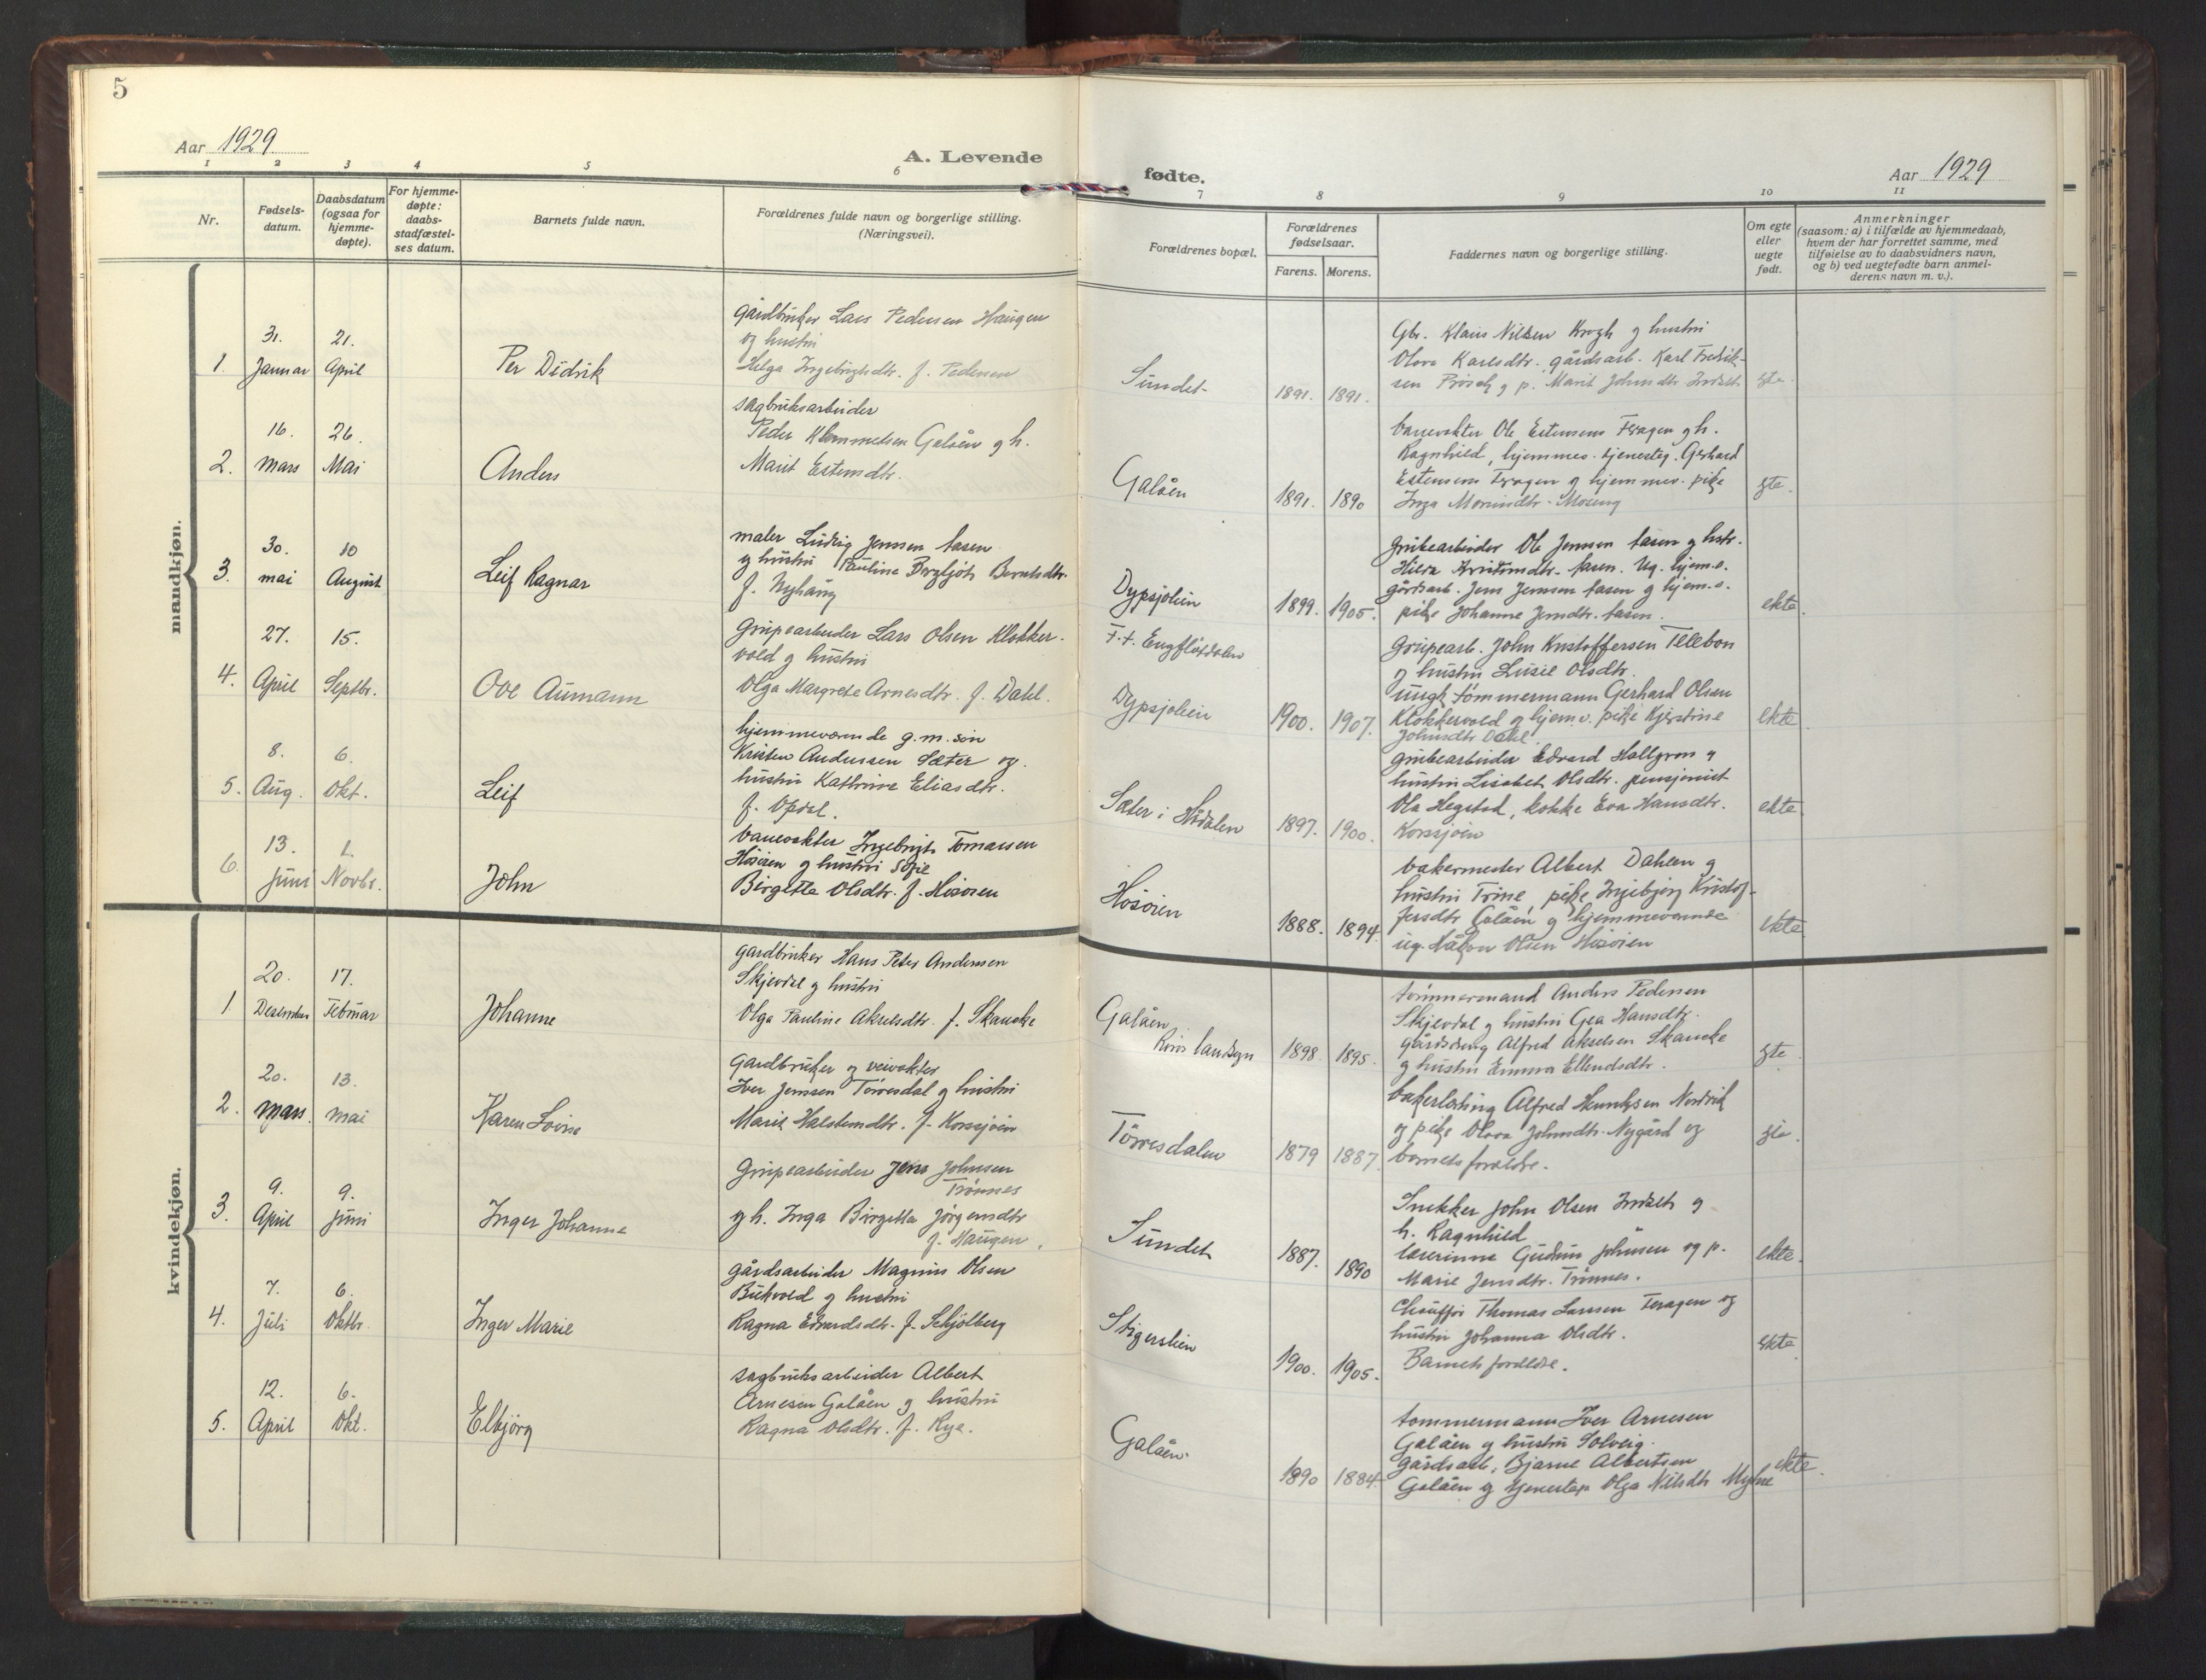 5
Aar 1929
A. Levende
1 2 3 4 5 6
Nr.
Fødsels-
datum.
Daabsdatum
(ogsaa for
hjemme-
døpte).
For hjemme-
døpte:
daabs-
stadfæstel-
ses datum.
Barnets fulde navn.
Forældrenes fulde navn og borgerlige stilling.
(Næringsvei).
mandkjøn.
1.
31.
Januar
21.
April
Per Didrik
gårdbruker Lars Pedersen Haugen
og hustru
Helga Ingebrigtsdtr. f. Pedersen
2.
16.
mars
26.
Mai
Anders
sagbruksarbeider
Peder Klemmetsen Galåen g h.
Marit Estensdtr.
3.
30.
mai
10
August
Leif Ragnar
maler Ludvig Jenssen Aasen
g hustru Pauline Bergljot Berntsdtr.
f. Nyhaug
4.
27.
April
15.
Septbr.
Ove Aumann
Grupearbeider Lars Olsen Klokker-
vold g hustru
Olga Margrete Arnesdtr. f. Dahl.
5.
8.
Aug.
6.
Okt.
Leif
hjemmeværende g.m. søn
Kristen Anderssen Sæter og
hustru Kathrine Eliasdtr.
f. Opdal.
6.
13.
Juni
1.
Novbr.
John
banevokter Ingebrigt Tomassen
Høsøien g hustru Sofie
Birgitta Olsdtr. f. Høsøien
kvindekjøn.
1.
20.
Desember
17.
Februar
Johanne
gardbruker Hans Peter Andersen
Skjevdal g hustru
Olga Pauline Akselsdtr. f. Skancke
2.
20.
mars.
13.
mai
Karen Lovise
Gardbruker og veivokter
Iver Jenssen Tørresdal g hustru
Marit Halstensdtr. f. Korssjøen
3.
9.
April
9.
Juni
Inger Johanne
Grupearbeider Jens Johnsen
Trønnes
g h. Inga Birgitta Jørgensdtr
f. Haugen.
4.
7.
Juli
6.
Oktbr.
Inger Marie
gårdsarbeider Magnus Olsen
Bukvold g hustru
Ragna Edvardsdtr. f. Schjølberg
5.
12.
April
6.
Okt.
Elbjørg
sagbruksarbeider Albert
Arnesen Galåen g hustru
Ragna Olsdtr. f. Rya.
fødte.
Aar 1929
7 8 9 10 11
Forældrenes bopæl.
Forældrenes
fødselsaar.
Farens. Morens.
Faddernes navn og borgerlige stilling.
Om egte
eller
uegte
født.
Anmerkninger
(saasom: a) i tilfælde av hjemmedaab,
hvem der har forrettet samme, med
tilføielse av to daabsvidners navn,
og b) ved uegtefødte barn anmel-
derens navn m. v.).
Sundet
1891. 1891.
Gbr. Klaus Nilsen Krogh g hustru
Olava Karlsdtr. gårdsarb. Karl Fredrik-
sen Prøsch g p. Marit Johnsdtr Indset
gte.
Galåen
1891. 1890
banevokter Ole Estensens Feragen g h.
Ragnhild, hjemmev. tjenesteg. Gerhard
Estensens Feragen g hjemmev. pike
Inga Monsdtr. Moseng
gte.
Dypsjølien
1899. 1905.
grubearbeider Ole Jenssen Aasen g hstr.
gårdsarb. Jens Jenssen Aasen g hjem.v.
pike Johanne Jensdtr. Aasen.
ekte.
Dypsjølien
1900. 1907.
Grupearb. John Kristoffersen Tellebon
g hustru Lusie Olsdtr.
ungk. tømmermann Gerhard Olsen
Klokkervold g hjem v. pike Kjerstine
Johnsdtr Dahl
ekte
Sæter i Hådalen
1897. 1900.
grubearbeider Edvard Hallgren g
hustru Lisabet Olsdtr. pensjonist
Ola Hegstad, kokke Eva Hansdtr.
Korssjøen
ekte
Høsøien
1888. 1894
bakermester Albert Dahlen g
hustru Trine, pike Ingebjørg Kristof-
fersdtr Galåen g hjemmeværende
ug. Håkon Olsen Høsøien
ekte
Galåen
Røros landsgn
1898. 1895.
tømmermand Anders Pedersen
Skjevdal g hustru Gea Hansdtr.
gårdsdreng Alfred Akselsen Skancke
g hustru Emma Ellendsdtr.
gte
Tørresdalen
1879 1887
bakerlærling Alfred Henriksen Nordvik
og pike Olava Johnsdtr. Nygård og
barnets forældre.
gte.
Sundet
1887. 1890
Snekker John Olsen Indseth g
h. Ragnhild
lærerinne Gudrun Johnsen og p.
Marie Jensdtr. Trønnes.
ekte.
Stigerslien
1900. 1905.
Chauffør Thomas Larssen Feragen og
hustru Johanna Olsdtr.
Barnets foreldre.
ekte
Galåen.
1890 1884
tømmermann Iver Arnesen
Galåen g hustru Solveig.
gårdsarb. Bjarne Albertsen
Galåen g tjenestep. Olga Nilsdtr Myhre
ekte.